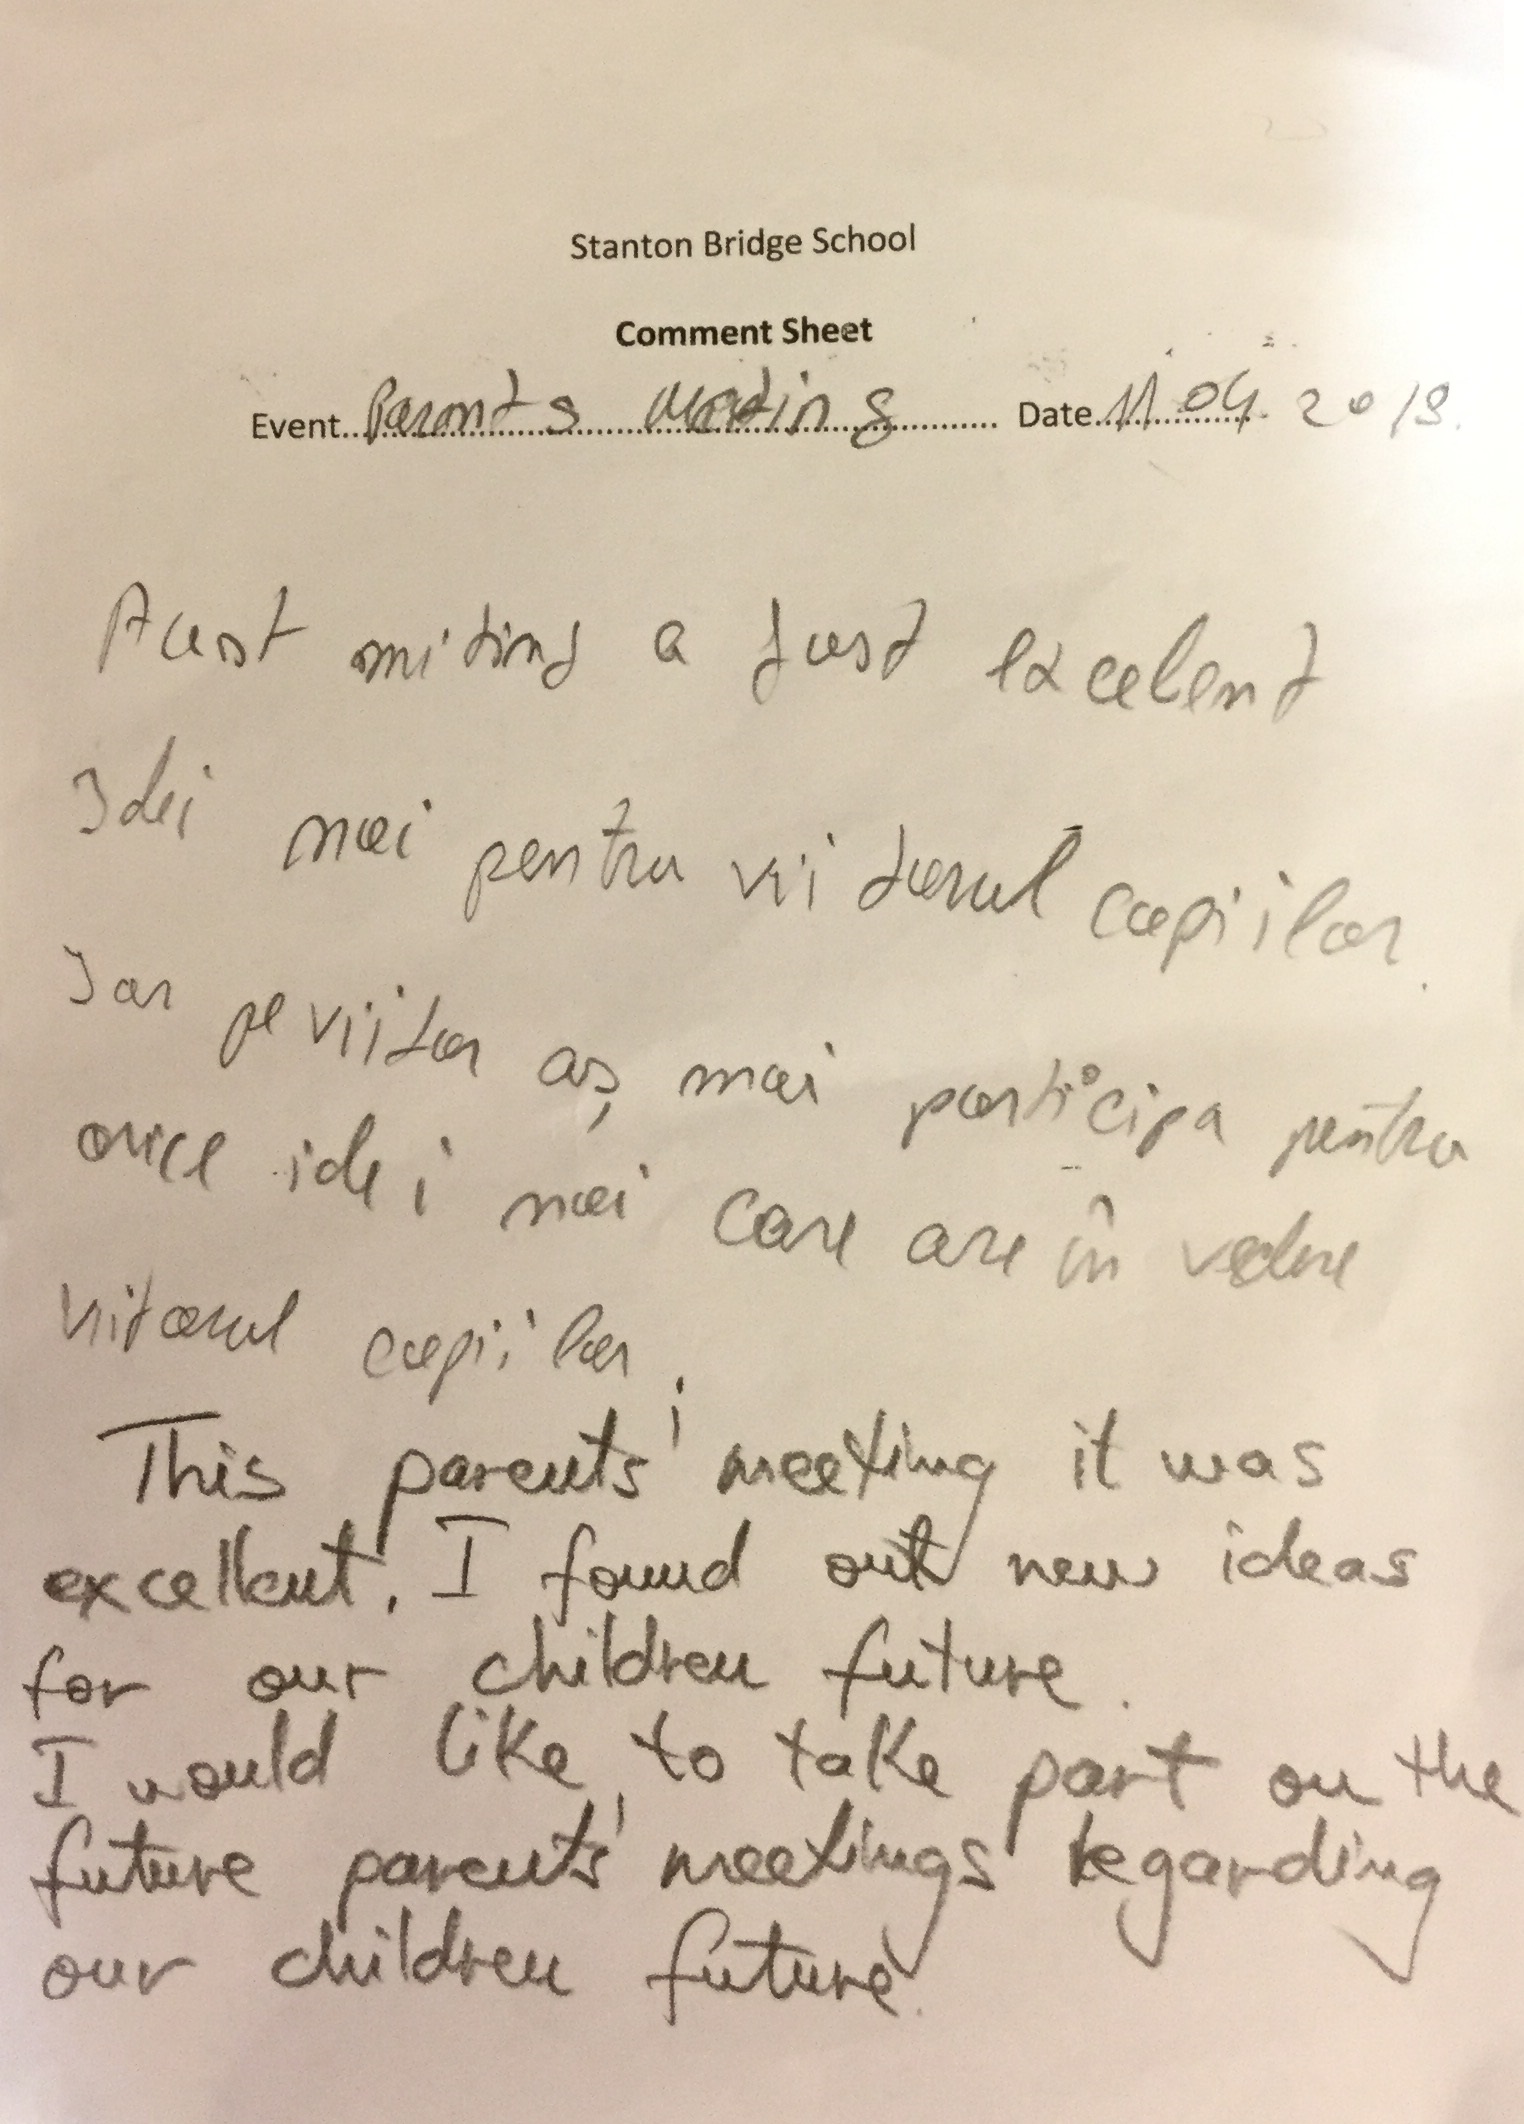 Stanton Bridge School
Comment Sheet
Event Parents meeting Date 11.04.2019.
Acest miting a fost excelent
Idei noi pentru viitorul copiilor.
Iar pe viitor aș mai participa pentru
orice idei noi care are în vedere
viitorul copiilor.
This parents' meeting it was
excellent. I found out new ideas
for our children future.
I would like to take part on the
future parents' meetings regarding
our children future.